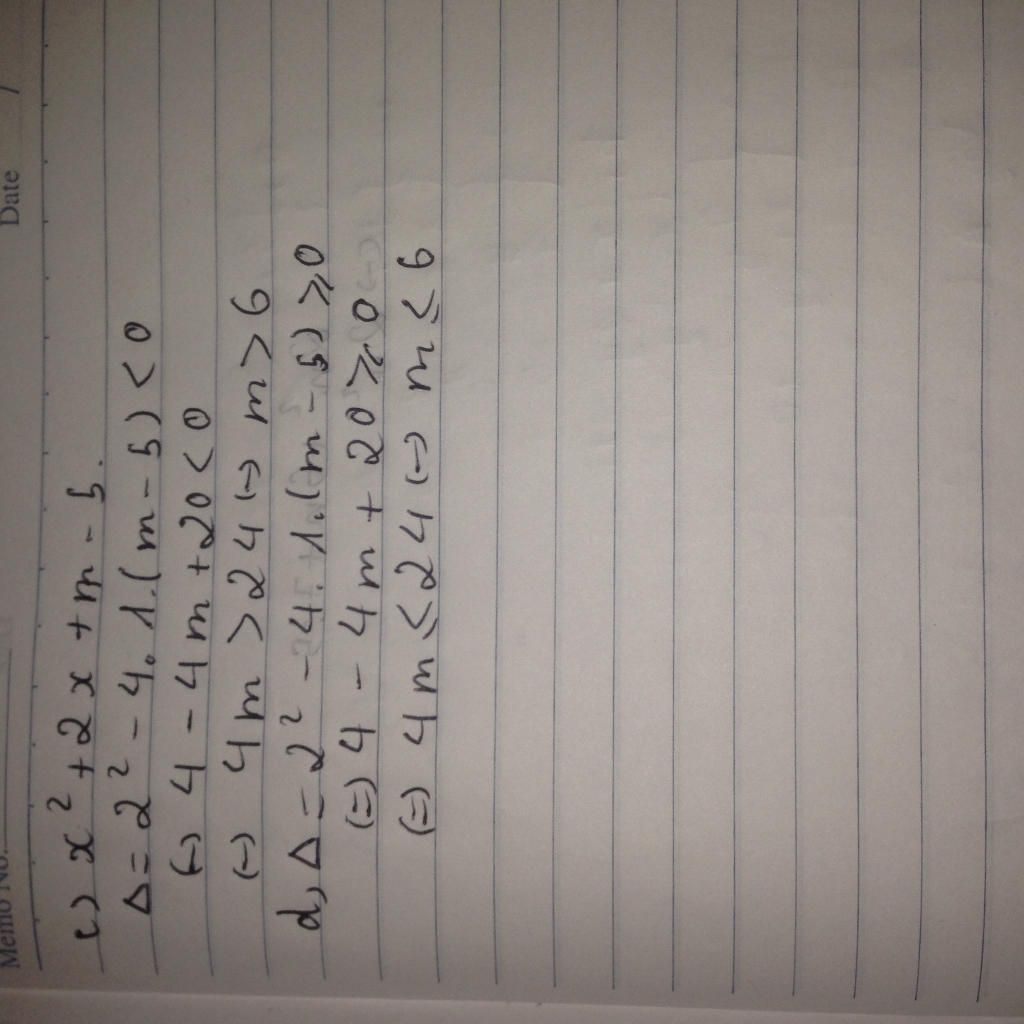 Memo No.
Date /
c) x² + 2x + m - 5.
Δ = 2² - 4.1.(m - 5) < 0
(-) 4 - 4m + 20 < 0
(-) 4m > 24 (-) m > 6
d, Δ = 2² - 4.1.(m - 5) ≥ 0
(=) 4 - 4m + 20 ≥ 0
(=) 4m ≤ 24 (-) m ≤ 6